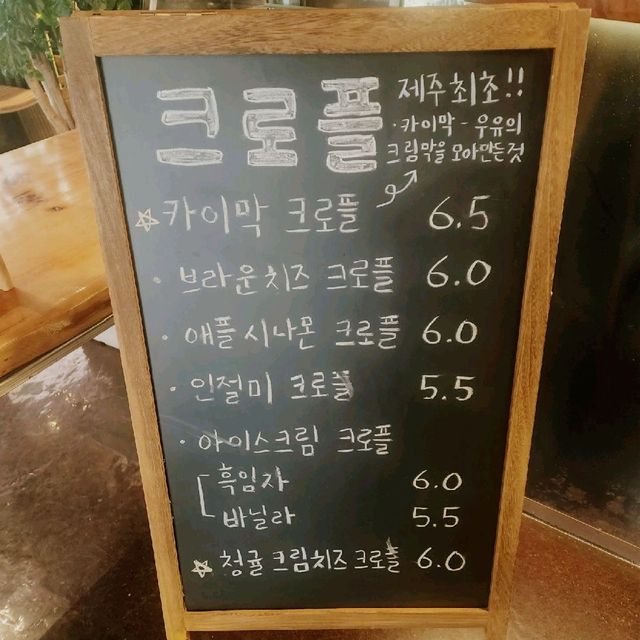 크로플
제주최초!!
·카이막 - 우유의
크림막을 모아만든것
☆카이막 크로플 6.5
· 브라운치즈 크로플 6.0
· 애플시나몬 크로플 6.0
· 인절미 크로플 5.5
· 아이스크림 크로플
흑임자 6.0
바닐라 5.5
☆ 청귤 크림치즈 크로플 6.0